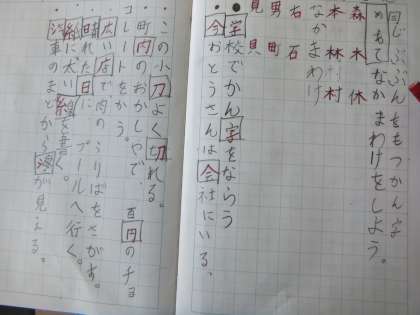 同じぶぶんをもつかん字
をあつめてなかまわけをしよう。
森 木 休
本 林 木 村
なかまわけ
右 石
男 町
見 貝
・学校でかん字をならう
・今おとうさんは会社にいる。
・この小刀よく切れる。
・町内のおかしやで百円のチョ
コレートをかう。
・広い店で肉のうりばをさがす。
・晴れた日にプールへ行く。
・紙に太い線を書く。
・汽車のまどから海が見える。